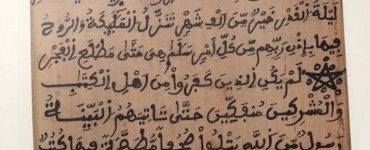 لَيْلَةُ الْقَدْرِ خَيْرٌ مِّنَ اَلْفِ شَهْرٍ تَنَزَّلُ الْمَلَٰٓئِكَةُ وَالرُّوحُ
فِيهَا بِإِذْنِ رَبِّهِم مِّن كُلِّ أَمْرٍ سَلَٰمٌ هِيَ حَتَّىٰ مَطْلَعِ الْفَجْرِ
لَمْ يَكُنِ الَّذِينَ كَفَرُوا مِنَ اَهْلِ الْكِتَٰبِ
وَالْمُشْرِكِينَ مُنفَكِّينَ حَتَّىٰ تَاتِيَهُمُ الْبَيِّنَةُ
رَسُولٌ مِّنَ اللَّهِ يَتْلُوا صُحُفًا مُّطَهَّرَةً فِيهَا كُتُبٌ